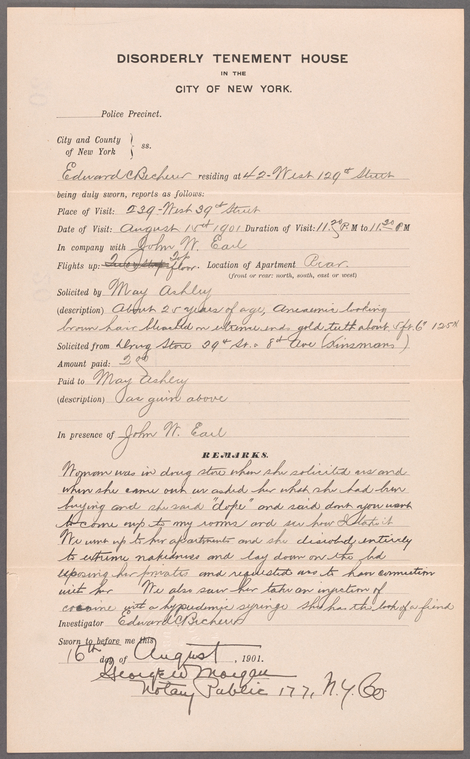 DISORDERLY TENEMENT HOUSE
IN THE
CITY OF NEW YORK.
Police Precinct.
City and County
of New York } ss.
Edward C Becherer residing at 42-West 129th Street
being duly sworn, reports as follows:
Place of Visit: 239-West 39th Street
Date of Visit: August 15th 1901 Duration of Visit: 11.20 P M to 11.30 P M
In company with John W. Earl
Flights up: floor. Location of Apartment Rear.
(front or rear: north, south, east or west)
Solicited by May Ashley
(description) About 25 years of age, Anaemic looking
brown hair bleached on extreme ends gold teeth about 5 ft. 6" 125
Solicited from Drug Store 39th St. & 8th Ave (Kinsmans)
Amount paid: 2 00
Paid to May Ashley
(description) as given above
In presence of John W. Earl
REMARKS.
Woman was in drug store when she solicited us and
when she came out we asked her what she had been
buying and she said "dope" and said don't you want
to come up to my rooms and see how I take it
We went up to her apartments and she disrobed entirely
to extreme nakedness and lay down on the bed
exposing her privates and requested us to have connection
with her We also saw her take an injection of
cocaine with a hypodermic syringe She has the look of a fiend
Investigator Edward C Becherer
Sworn to before me this
16th day of August, 1901.
George W Morgan
Notary Public 177, N.Y. Co